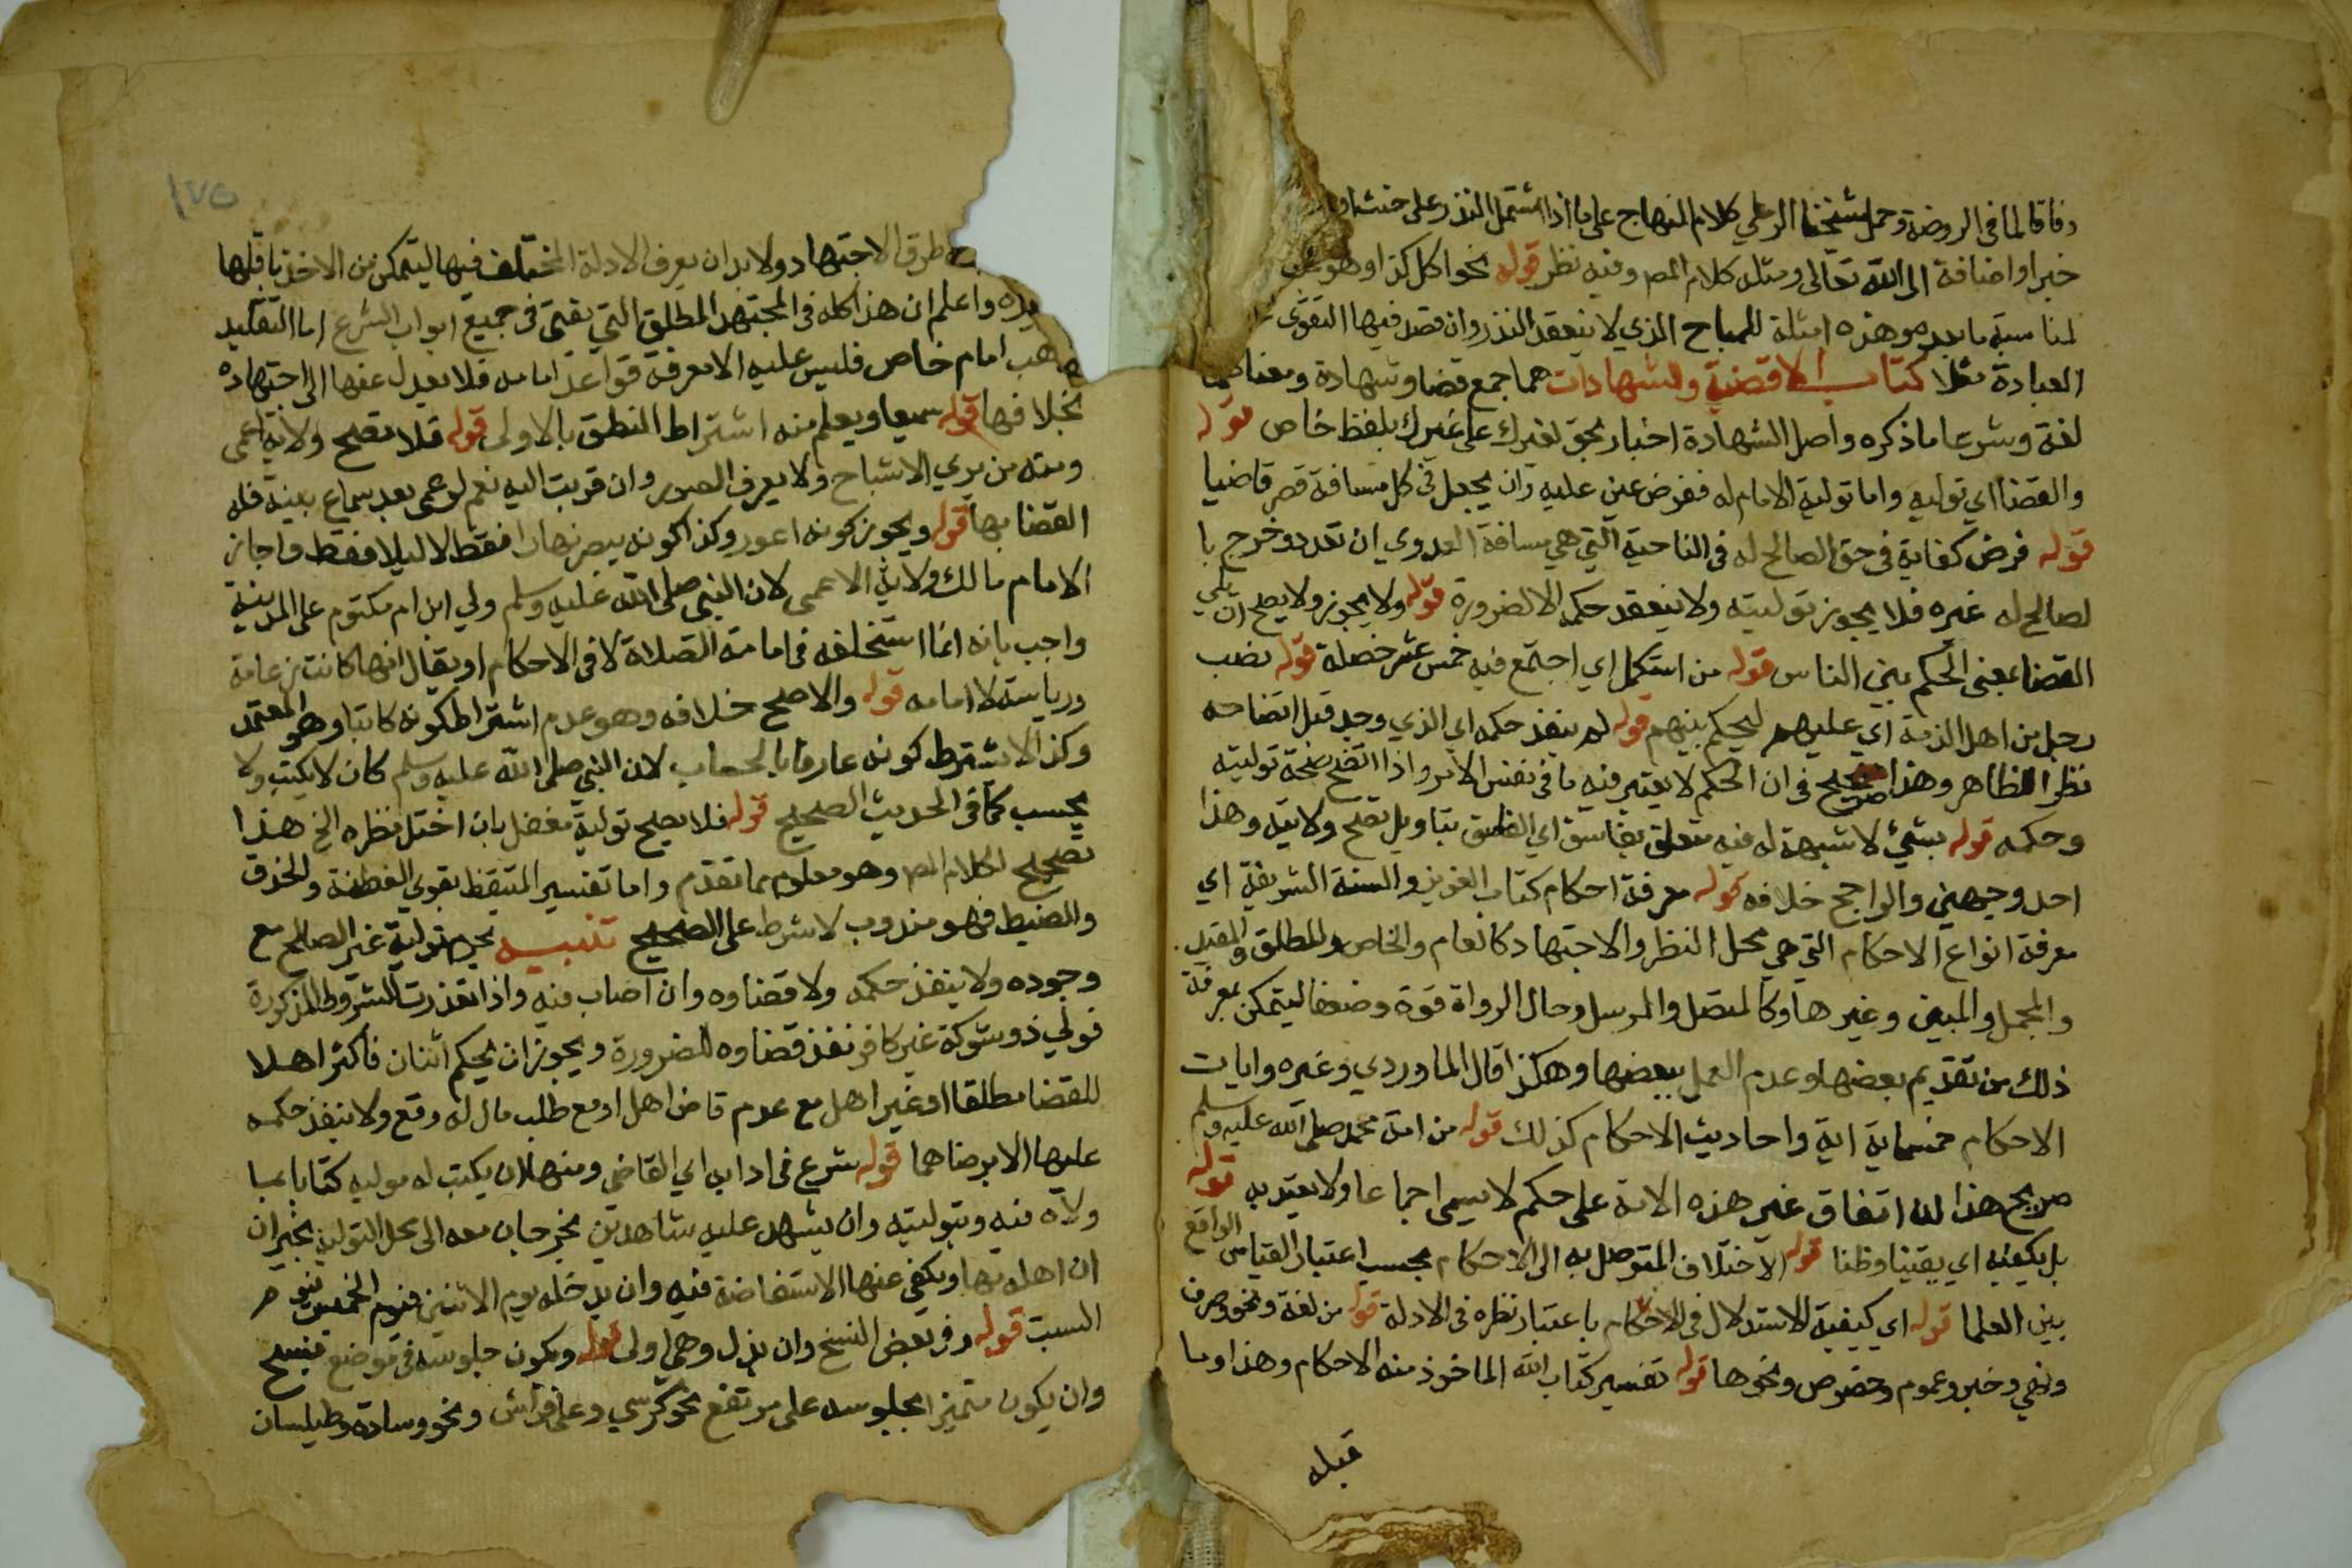 وفاقا لما في الروضة وحمل شيخنا الرملي كلام المنهاج على ما اذا اشتمل النذر على حث او
خبر او اضافة الى الله تعالى ومثله كلام المص وفيه نظر قوله نحو اكل كذا وهو
لمناسبة ما بعده وهذه امثلة للمباح الذي لا ينعقد النذر وان قصد فيها التقوى
العبادة مثلا كتاب الاقضية والشهادات هما جمع قضا وشهادة ومعناهما
لغة وشرعا ما ذكره واصل الشهادة اخبار بحق لغيرك على غيرك بلفظ خاص قوله
والقضا اي توليه واما تولية الامام له ففرض عين عليه وان يجعل في كل مسافة قصر قاضيا
قوله فرض كفاية في حق الصالح له في الناحية التي هي مسافة العدوي ان تعدد وخرج با
لصالح له غيره فلا يجوز توليته ولا ينعقد حكمه الا لضرورة قوله ولا يجوز ولا يصح ان يلي
القضا بمعنى الحكم بين الناس قوله من استكمل اي اجتمع فيه خمس عشر خصلة قوله نصب
رجل من اهل الذمة اي عليهم ليحكم بينهم قوله لم ينفذ حكمه اي الذي وجد قبل اتضاحه
نظرا للظاهر وهذا صريح في ان الحكم لا يعتبر فيه ما في نفس الامر واذا اتضح صحة توليته
وحكمه قوله بشيئ لا شبهة له فيه متعلق بفاسق اي الفاسق بتاويل تصح ولايته وهذا
احد وجهين والراجح خلافه قوله معرفة احكام كتاب العزيز والسنة الشريفة اي
معرفة انواع الاحكام التي هي محل النظر والاجتهاد كالعام والخاص والمطلق والمقيد
والمجمل والمبين وغيرها وكالمتصل والمرسل وحال الرواة قوة وضعفا ليتمكن بمعرفة
ذلك من تقديم بعضها وعدم العمل ببعضها وهكذا قال الماوردي وغيره وايات
الاحكام خمسماية اية واحاديث الاحكام كذلك قوله من امة محمد صلى الله عليه وسلم
صريح هذا ان اتفاق غير هذه الامة على حكم لا يسمى اجماعا ولا يعتد به قوله
بل يكفيه اي يقينا وظنا قوله الاختلاف المتوصل به الى الاحكام بحسب اعتبار القياس الواقع
بين العلما قوله اي كيفية الاستدلال في الاحكام باعتبار نظره في الادلة قوله من لغة ونحو وصرف
ونفي وخبر وعموم وخصوص ونحوها قوله تفسير كتاب الله الماخوذ منه الاحكام وهذا وما
قبله
١٧٥
طرق الاجتهاد ولا بد ان يعرف الادلة المختلف فيها ليتمكن من الاخذ باقلها
واعلم ان هذا كله في المجتهد المطلق التي يفتي في جميع ابواب الشرع اما التقليد
هب امام خاص فليس عليه الا معرفة قواعد امامه فلا يعدل عنها الى اجتهاده
بخلافها قوله سميعا ويعلم منه اشتراط النطق بالاولى قوله فلا تصح ولاية اعمى
ومثله من يري الاشباح ولا يعرف الصور وان قربت اليه نعم لو عمي بعد سماع بينة فله
القضا بها قوله ويجوز كونه اعور وكذا كونه يبصر نهارا فقط لا ليلا فقط واجاز
الامام مالك ولاية الاعمى لان النبي صلى الله عليه وسلم ولي ابن ام مكتوم على المدينة
واجب بانه انما استخلفه في امامة الصلاة لا في الاحكام او يقال انها كانت زعامة
ورياسة لا امامه قوله والاصح خلافه وهو عدم اشتراط كونه كاتبا وهو المعتمد
وكذا لا يشترط كونه عارفا بالحساب لان النبي صلى الله عليه وسلم كان لا يكتب ولا
يحسب كما في الحديث الصحيح قوله فلا يصح تولية مغفل بان اختل نظره الخ هذا
تصحيح لكلام المص وهو معلوم مما تقدم واما تفسير المتيقظ بقوي الفطنة والحذق
والضبط فهو مندوب لا شرط على الصحيح تنبيه يحرم تولية غير الصالح مع
وجوده ولا ينفذ حكمه ولا قضاوه وان اصاب فيه واذا تعذرت الشروط المذكورة
فولي ذو شوكة غير كافر نفذ قضاوه للضرورة ويجوز ان يحكم اثنان فاكثر اهلا
للقضا مطلقا او غير اهل مع عدم قاض اهل او مع طلب مال له وقع ولا ينفذ حكمه
عليها الا برضاهما قوله شرع في اداب اي القاضي ومنها ان يكتب له موليه كتابا بما
ولاه فيه وبتوليته وان يشهد عليه شاهدين يخرجان معه الى محل التولية يخبران
ان اهله بها ويكفي عنها الاستفاضة فيه وان يدخله يوم الاثنين فيوم الخميس فيوم
السبت قوله وفي بعض النسخ وان ينزل وهي اولى قوله ويكون جلوسه في موضع فسيح
وان يكون متميزا بجلوسه على مرتفع نحو كرسي وعلى فراش ونحو وسادة وطيلسان